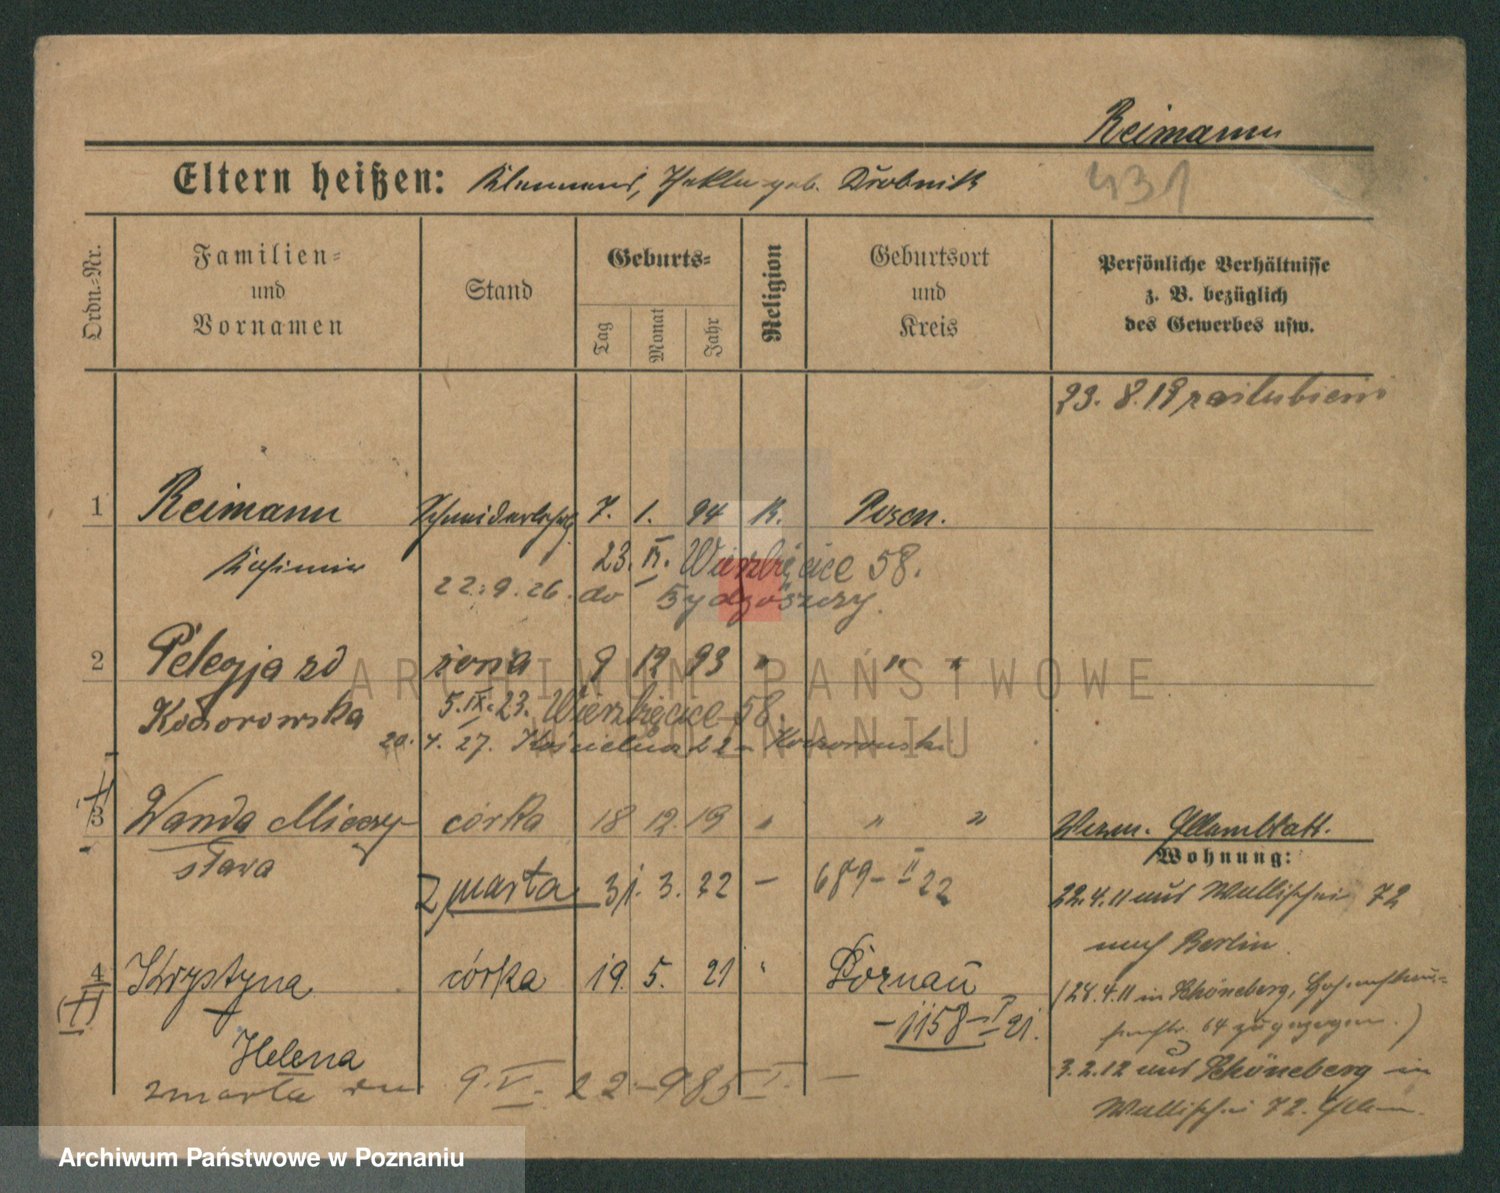 Reimann
Eltern heißen: Klemens, Thekla geb. Drobnik
431
Ordn.-Nr.
Familien-
und
Vornamen
Stand
Geburts-
Tag
Monat
Jahr
Religion
Geburtsort
und
Kreis
Persönliche Verhältnisse
z. B. bezüglich
des Gewerbes usw.
23. 8. 19 zaślubieni
1 Reimann Schneiderlehrl. 7. 1. 94 K. Posen.
Kasimir 23. IV. Wierzbięcice 58.
22. 9. 26. do Bydgoszczy.
2 Pelagja zd żona 9 12 93 " " "
Koczorowska 5. IX. 23. Wierzbięcice 58.
20. 4. 27. Kościelna 22 Koczorowski
3 Wanda Mieczy- córka 18 12. 19 " " "
sława
zmarła 31. 3. 22 – 689 – II 22
4 Krystyna córka 19. 5. 21 " Poznań
– 1158 – I 21.
Helena
zmarła dn. 9. V. 22 – 985 I. –
Verm. Elternblatt.
Wohnung:
22. 4. 11 aus Wallischei 72
nach Berlin.
(28. 4. 11 in Schöneberg,
64 zugezogen.)
3. 2. 12 aus Schöneberg in
Wallischei 72. Eltern.
ARCHIWUM PAŃSTWOWE
W POZNANIU
Archiwum Państwowe w Poznaniu